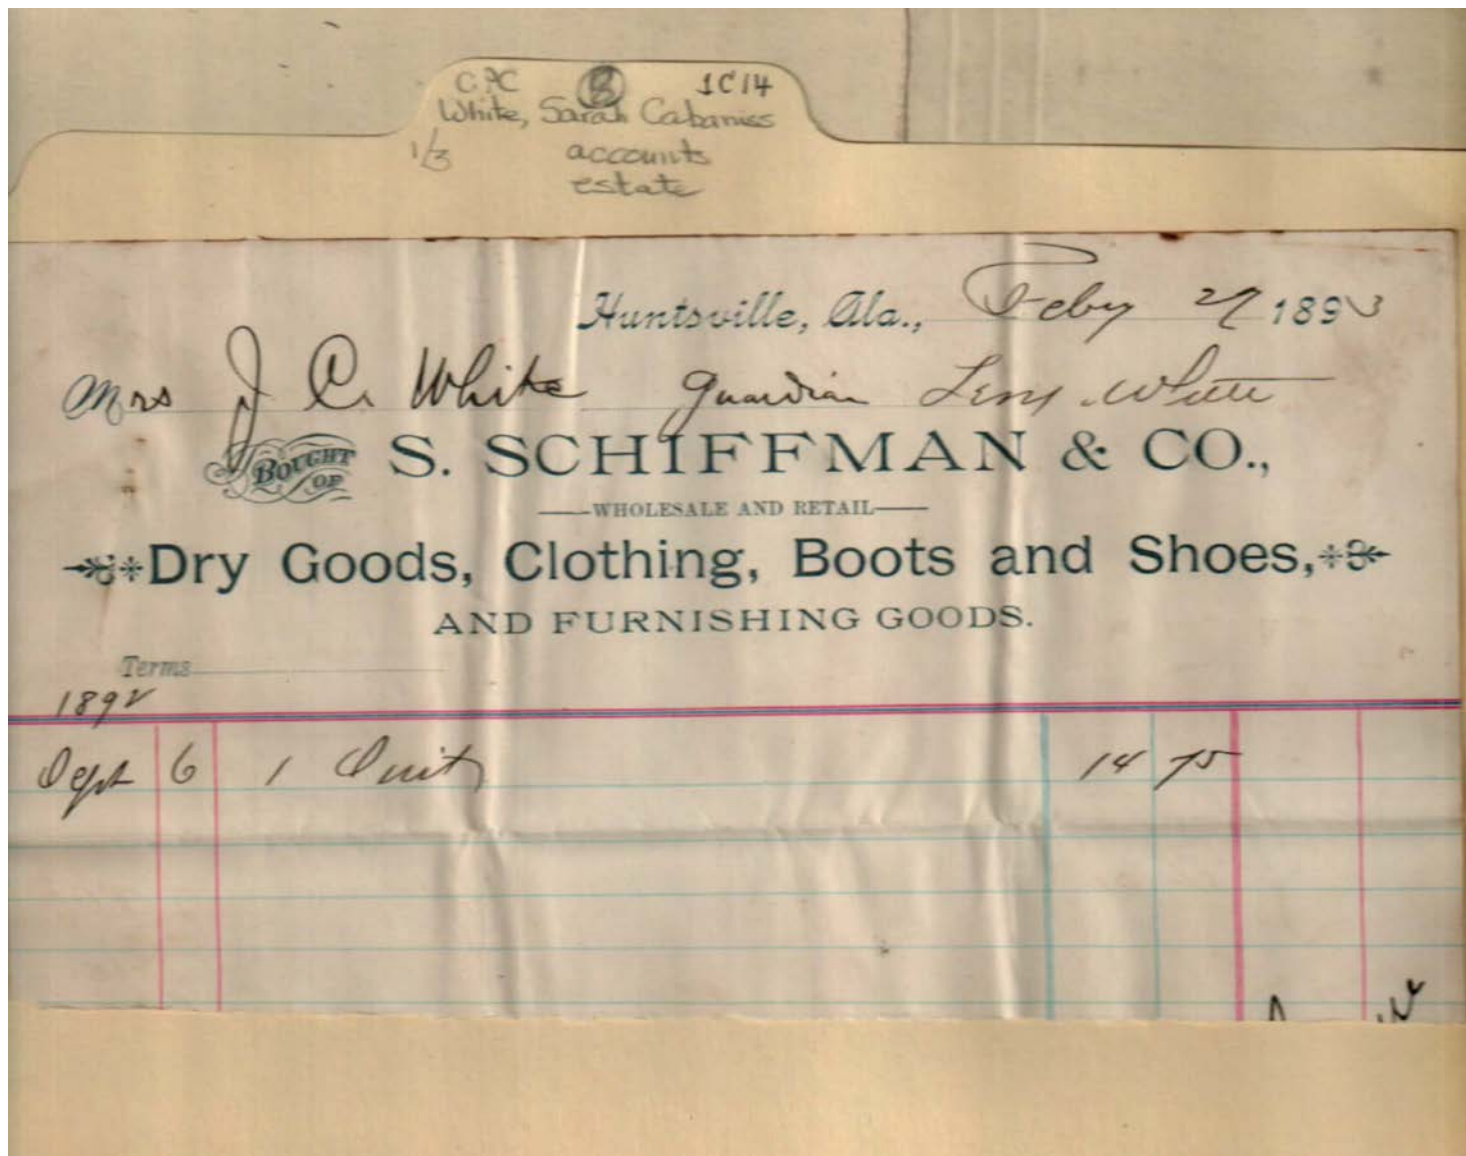 CPC B 1C14
White, Sarah Cabaniss
1/3 accounts
estate
Huntsville, Ala., Feby 27 1893
Mrs J C. White guardian White
BOUGHT OF S. SCHIFFMAN & CO.,
WHOLESALE AND RETAIL
Dry Goods, Clothing, Boots and Shoes,
AND FURNISHING GOODS.
Terms
1892
Sept 6 1 Suit 14 75